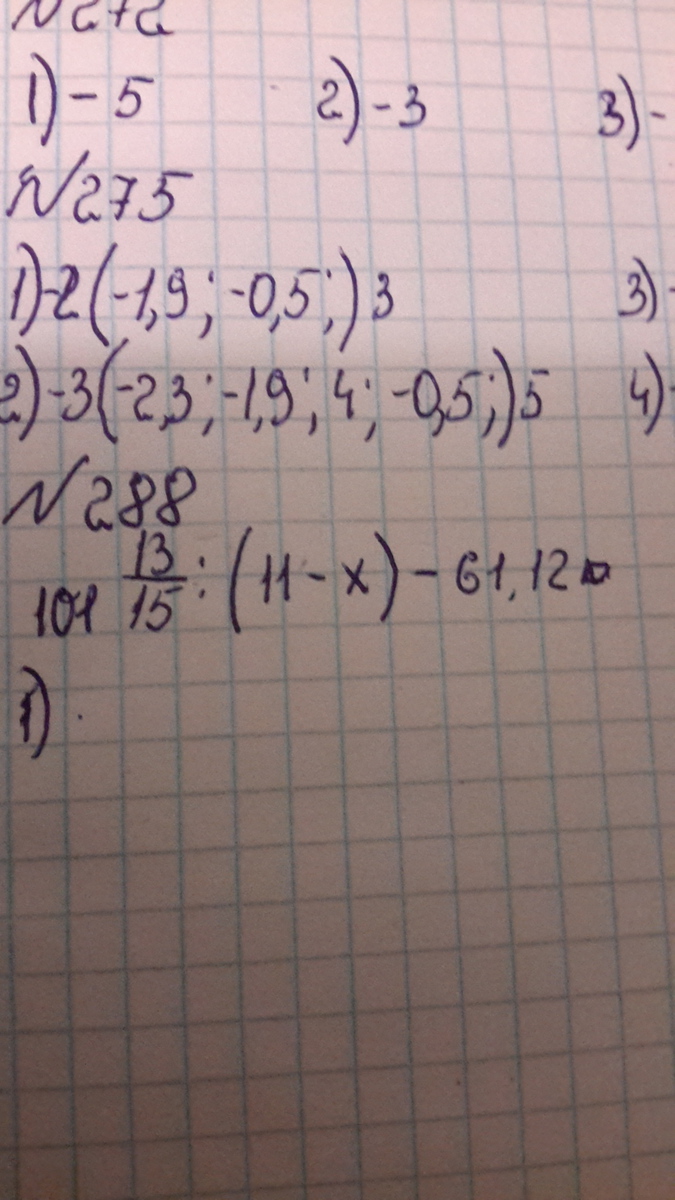 №272
1) - 5 2) - 3 3) -
№275
1) -2 (-1,9; -0,5;) 3 3) -
2) -3 (-2,3; -1,9; 4; -0,5;) 5 4) -
№288
101 13/15 : (11 - x) - 61,12
1)